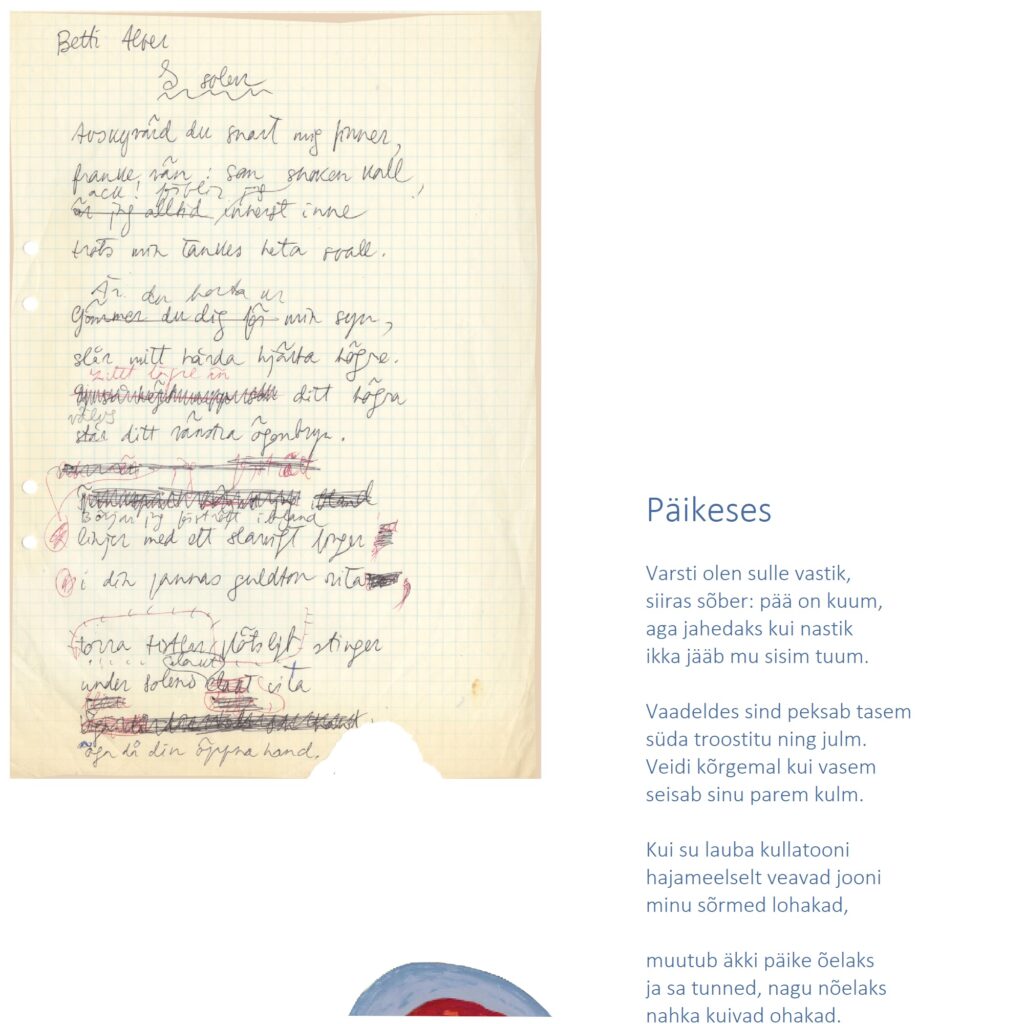 Betti Alver
I solen
Avskyvärd du snart mig finner,
franke vän: som snoken kall
ack! förblir jag
är jag alltid innerst inne
trots min tankes heta svall.
Är du borta ur
Gömmer du dig för min syn,
slår mitt hårda hjärta högre.
litet högre än
ditt högra
välvs
står ditt vänstra ögonbryn.
ibland
Börjar jag förstrött ibland
linjer med ett slarvigt finger
i din pannas guldton rita
torra tistlar plötsligt stinger
under solens
vita
öga då din öppna hand.
Päikeses
Varsti olen sulle vastik,
siiras sõber: pää on kuum,
aga jahedaks kui nastik
ikka jääb mu sisim tuum.
Vaadeldes sind peksab tasem
süda troostitu ning julm.
Veidi kõrgemal kui vasem
seisab sinu parem kulm.
Kui su lauba kullatooni
hajameelselt veavad jooni
minu sõrmed lohakad,
muutub äkki päike õelaks
ja sa tunned, nagu nõelaks
nahka kuivad ohakad.